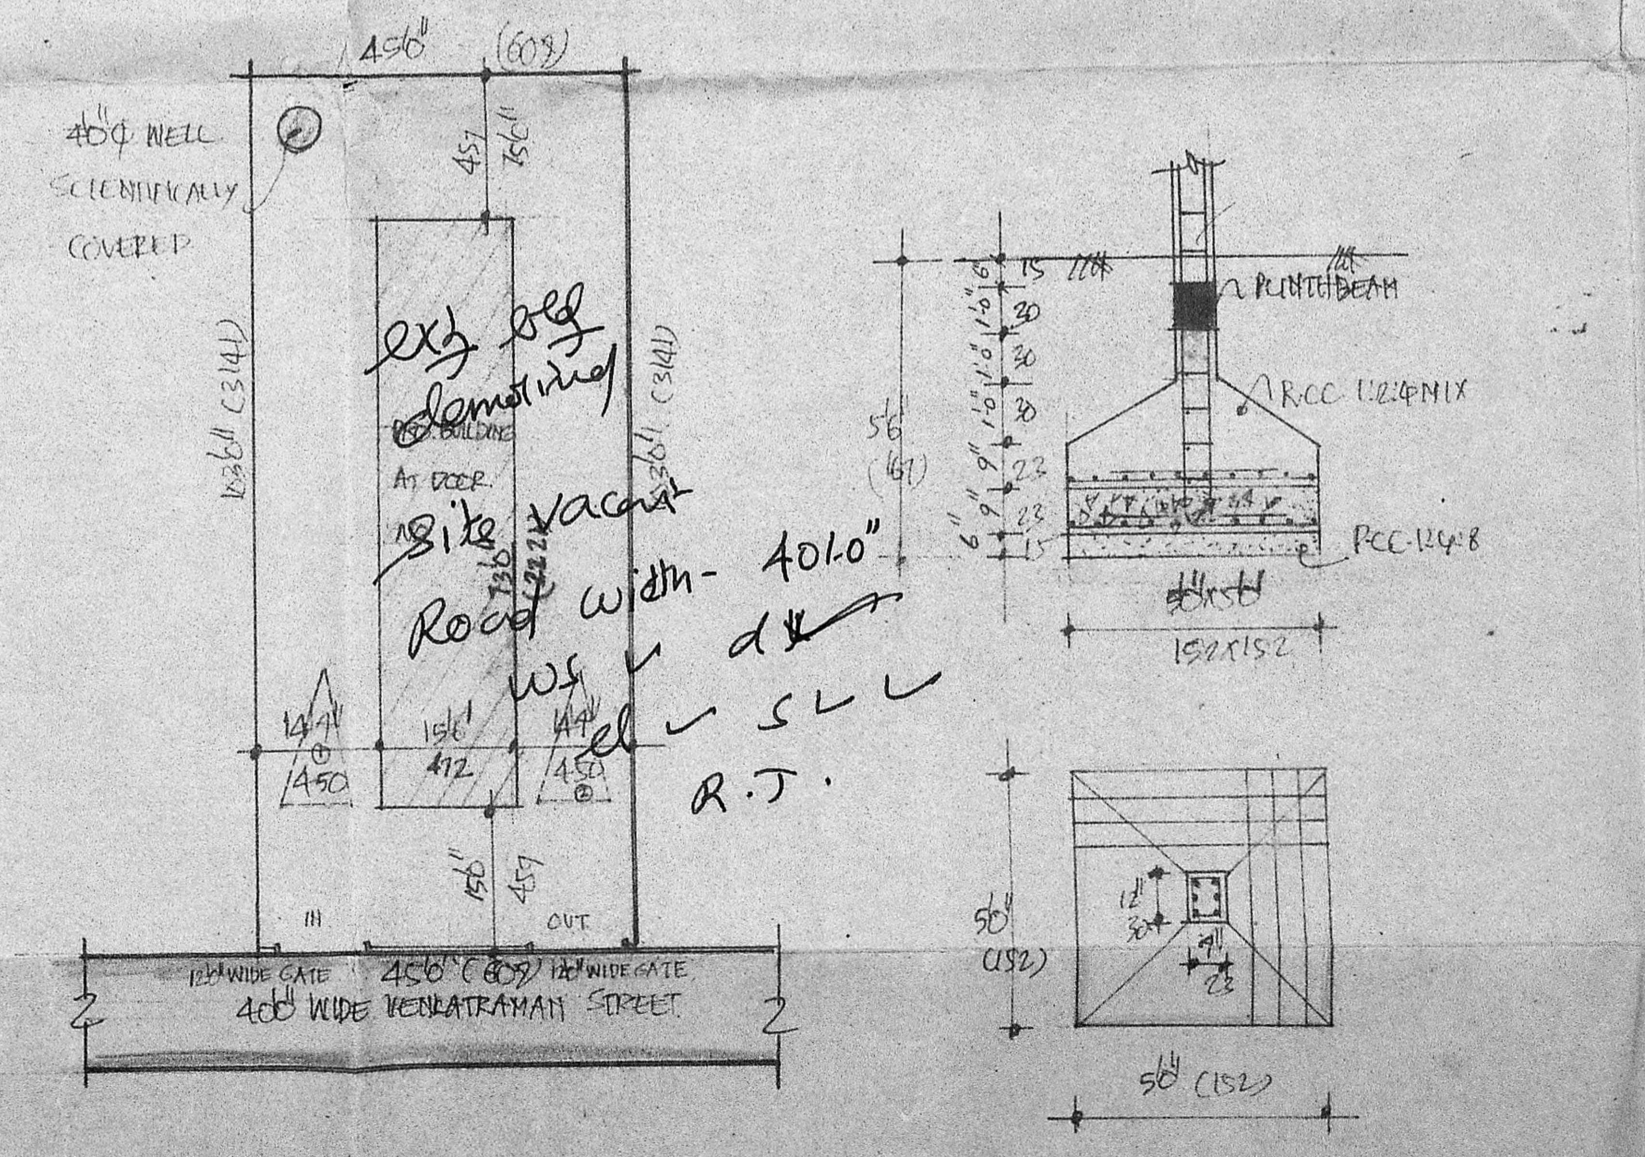 45'0" (608)
4'0"¢ WELL
SCIENTIFICALLY
COVERED
457
15'0"
103'0" (3141)
103'0" (3141)
exg blg
demolind
PRO. BUILDING
AT DOOR
site vacant
73'0"
Road width - 40'-0"
WS ✓ d ✓
el ✓ SL ✓
R.J.
14'9"
1
450
15'6"
472
14'9"
450
2
15'0"
457
IN
OUT
12'0" WIDE GATE
45'0" (608)
12'0" WIDE GATE
40'0" WIDE VENKATRAMAN STREET
5'6"
(167)
6" 15
1'-0" 30
1'-0" 30
1'-0" 30
9" 23
9" 23
6" 15
PLINTH BEAM
R.C.C. 1:2:4 MIX
P.C.C. 1:4:8
5'0"x5'0"
152x152
5'0"
(152)
12"
30
9"
23
5'0" (152)